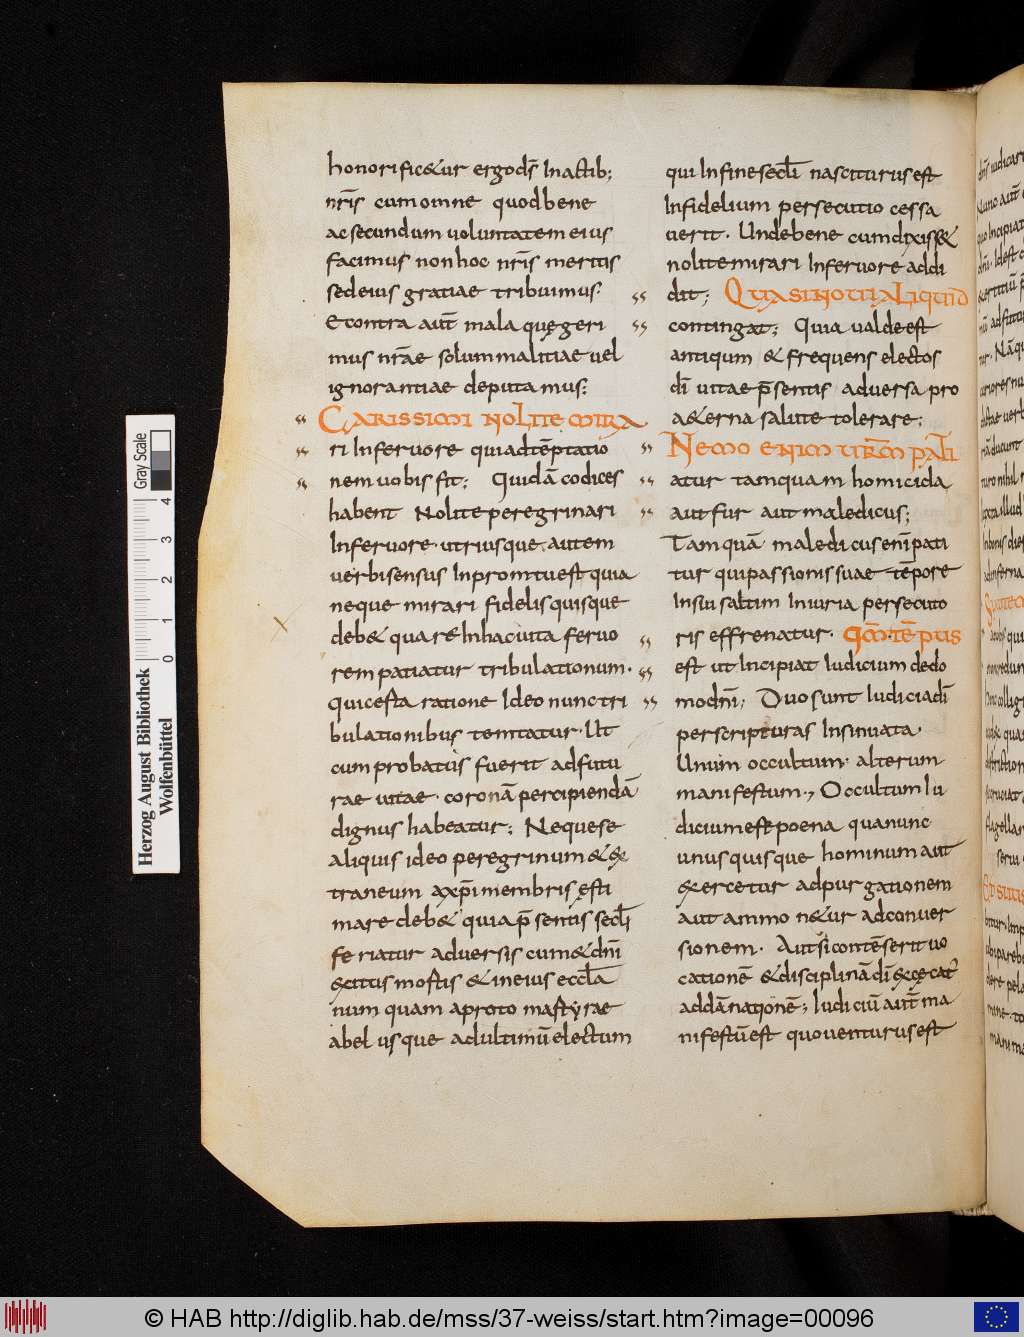 honorific&ur ergo ds̄ Inactib;
nr̄is cum omne quod bene
ac secundum uoluntatem eius
facimus non hoc nr̄is meritis
sed eius gratiae tribuimus.
E contra aut̄ mala quę geri
mus nr̄ae solum malitiae uel
ignorantiae deputamus;
CARISSIMI NOLITE MIRA
ri Inferuore qui ad tēptatio
nem uobis fit; Quidā codices
habent Nolite peregrinari
Inferuore. utriusque autem
uerbi sensus Inpromtu est quia
neque mirari fidelis quisque
deb& quare Inhac uita feruo
rem patiatur tribulationum.
qui certa ratione Ideo nunc tri
bulationibus temtatur. Ut
cum probatus fuerit ad futu
rae uitae. coronā percipiendā
dignus habeatur; Neque se
aliquis ideo peregrinum & ex
traneum a xp̄i membris esti
mare deb& quia p̄sentis secl̄i
feriatur aduersis cum & dn̄i
exitus mortis & in eius eccl̄a
numquam a proto martyrae
abel usque ad ultimū electum
qui Infine secl̄i nasciturus est
Infidelium persecutio cessa
uerit. Unde bene cum dixiss&
nolite mirari Inferuore addi
dit; QUASI NOUI ALIQUID
contingat; Quia ualde est
antiqum & frequens electos
dī uitae p̄sentis aduersa pro
a&erna salute tolerare;
NEMO ENIM UR̄M PATI
atur tamquam homicida
aut fur aut maledicus;
Tamquā maledicus enī pati
tur qui passionis suae tēpore
Insui saltim Iniuria persecuto
ris effrenatur. QM̄ TĒPUS
est ut Incipiat Iudicium dedo
mo dn̄i; Duo sunt Iudicia dī
per scripturas Insinuata.
Unum occultum. alterum
manifestum., Occultum Iu
dicium est poena qua nunc
unus quisque hominum aut
exercetur ad purgationem
aut ammon&ur ad conuer
sionem. Aut si contēserit uo
cationē & disciplinā dī excęcat̄
ad dānationē; Iudiciū aut̄ ma
nifestū est quo uenturus est
Herzog August Bibliothek
Wolfenbüttel
0 1 2 3 4
Gray Scale
© HAB http://diglib.hab.de/mss/37-weiss/start.htm?image=00096